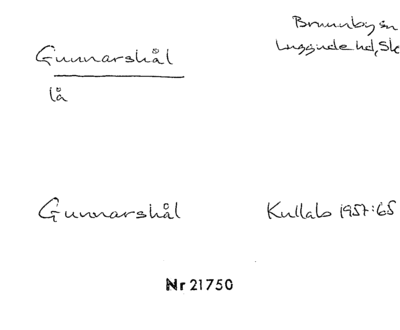 Gunnarshål
Brunnby sn
Luggude hd, Sk
lå
Gunnarshål
Kullab 1957:65
Nr 21750